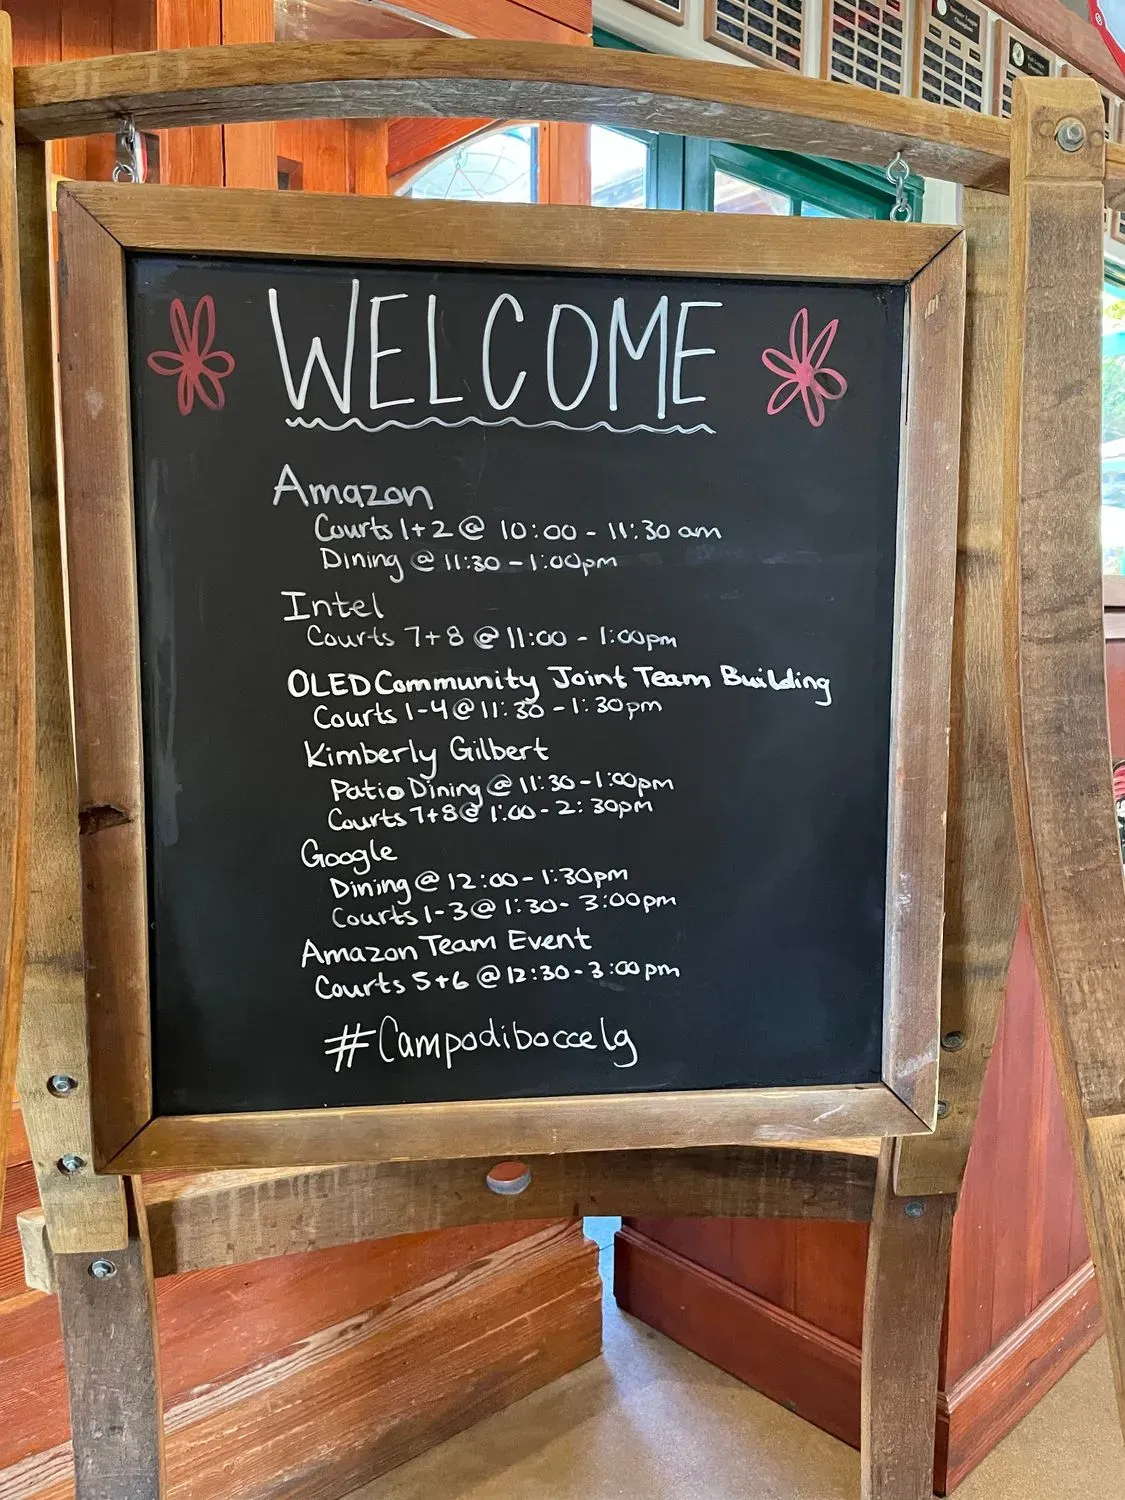 WELCOME
Amazon
Courts 1+2 @ 10:00 - 11:30 am
Dining @ 11:30 - 1:00pm
Intel
Courts 7+8 @ 11:00 - 1:00pm
OLED Community Joint Team Building
Courts 1-4 @ 11:30 - 1:30pm
Kimberly Gilbert
Patio Dining @ 11:30 - 1:00pm
Courts 7+8 @ 1:00 - 2:30pm
Google
Dining @ 12:00 - 1:30pm
Courts 1-3 @ 1:30 - 3:00pm
Amazon Team Event
Courts 5+6 @ 12:30 - 3:00pm
#Campodiboccelg